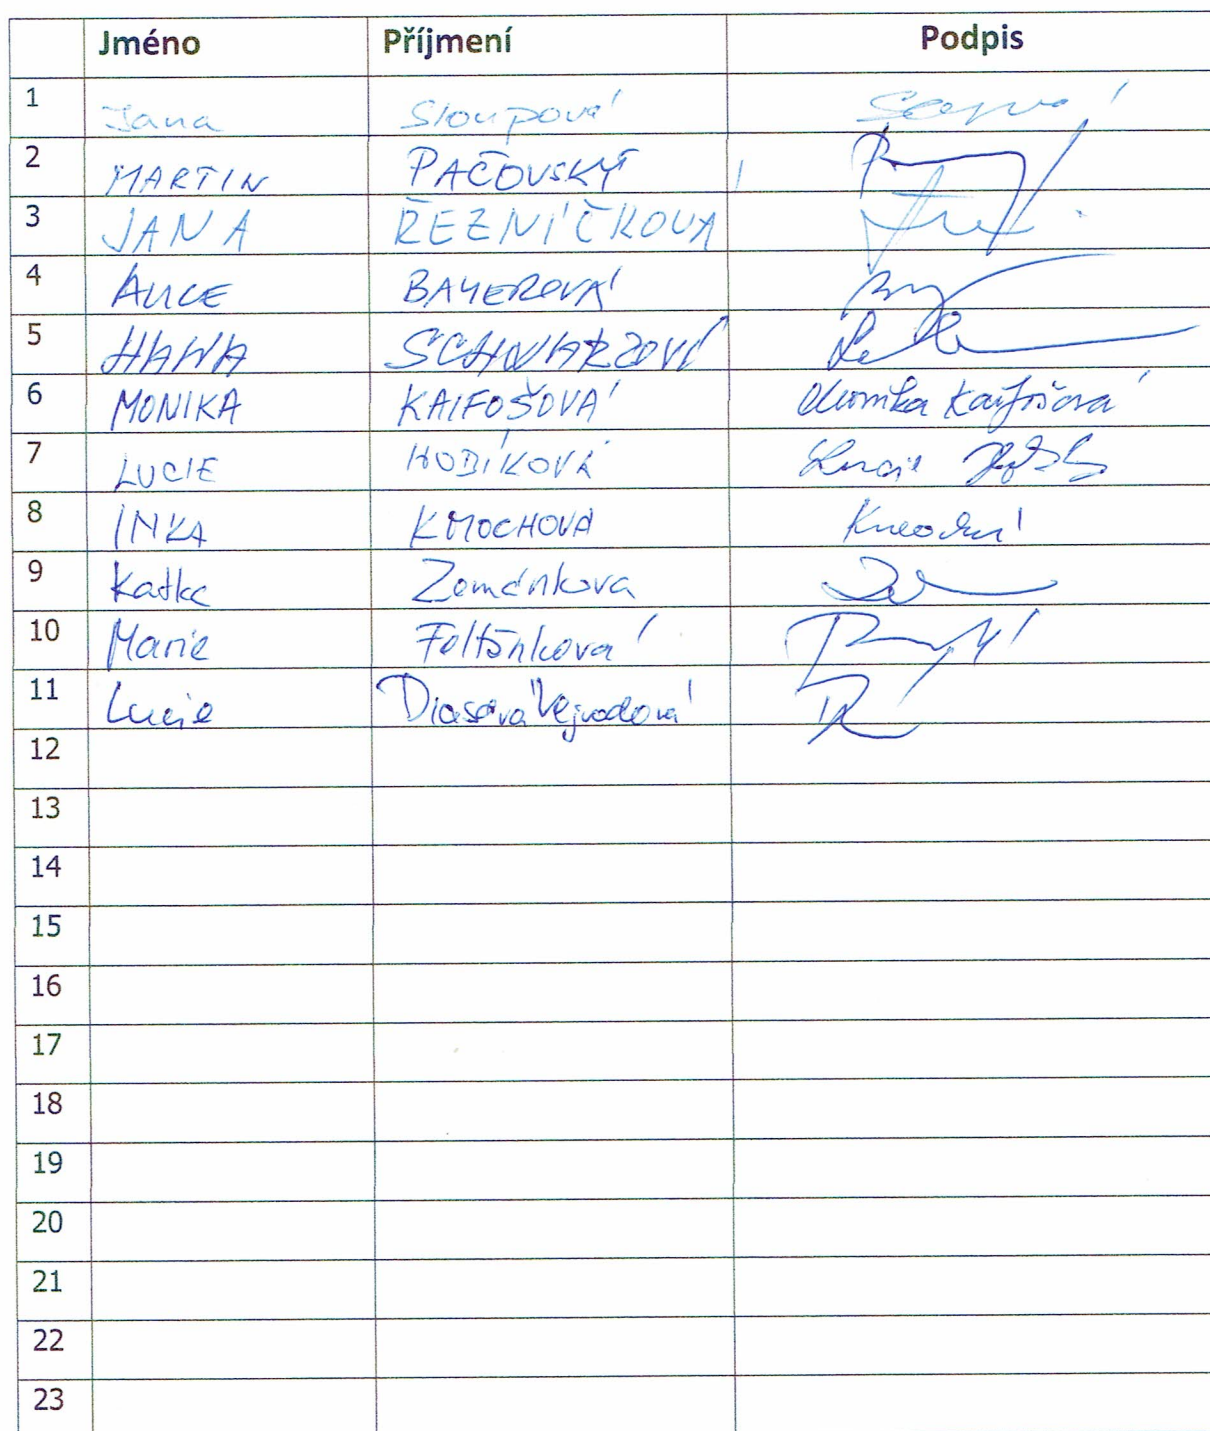 Jméno Příjmení Podpis
1 Jana Sloupová
2 MARTIN PAČOVSKÝ
3 JANA ŘEZNÍČKOVA
4 ALICE BAYEROVÁ
5 HANA SCHWARZOVÁ
6 MONIKA KAIFOŠOVÁ Monika Kaifošová
7 LUCIE HOBÍKOVÁ Lucie
8 INKA KMOCHOVÁ Kmochová
9 Katka Zemánkova
10 Marie Foltýnková
11 Lucie Vejvodová
12
13
14
15
16
17
18
19
20
21
22
23